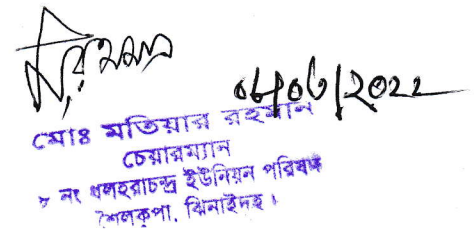 ০৮/০৬/২০২২
মোঃ মতিয়ার রহমান
চেয়ারম্যান
নং ধলহরাচন্দ্র ইউনিয়ন পরিষদ
শৈলকুপা, ঝিনাইদহ।